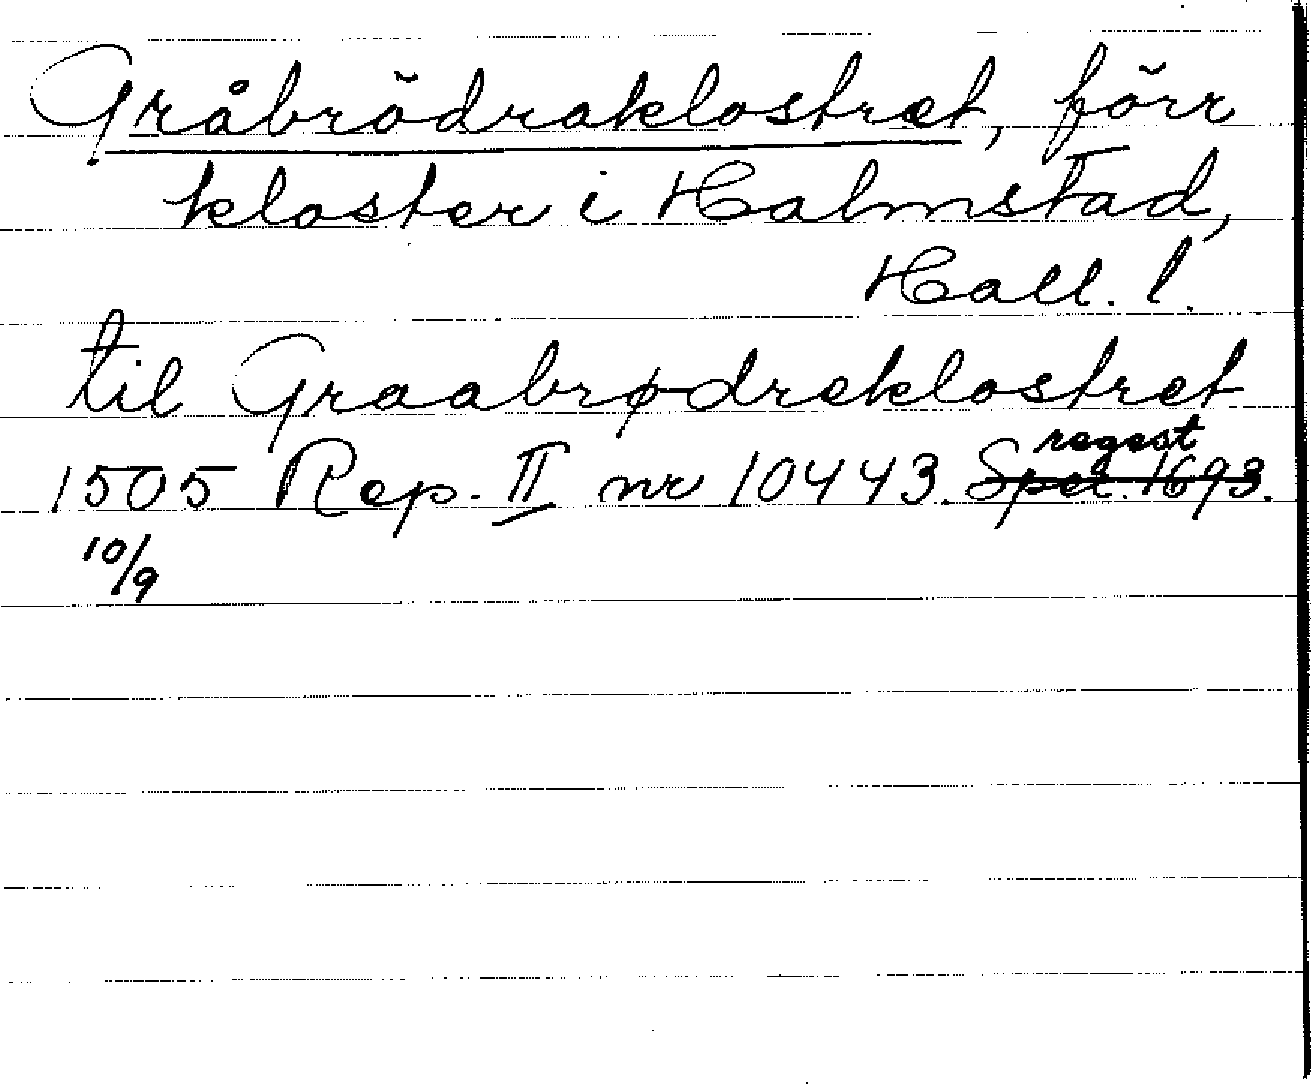 Gråbrödraklostret, förr
kloster i Halmstad,
Hall. l.
til Graabrødreklostret
regest
1505 Rep. II nr 10443. Spec. 1693.
10/9